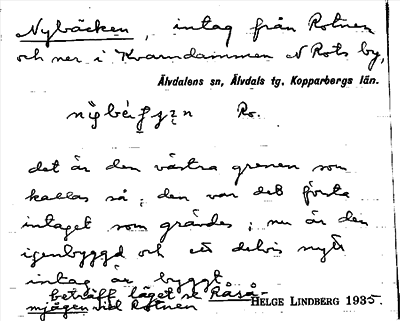 Nybäcken, intag från Rotnen
och ner i Kvarndammen N Rots by,
Älvdalens sn, Älvdals tg, Kopparbergs län.
Ro.
det är den västra grenen som
kallas så; den var det första
intaget som grävdes; nu är den
igenbyggd och ett delvis nytt
intag är byggt.
beträff. läget se Råså-
mjågen vid Rotnen
HELGE LINDBERG 1935.